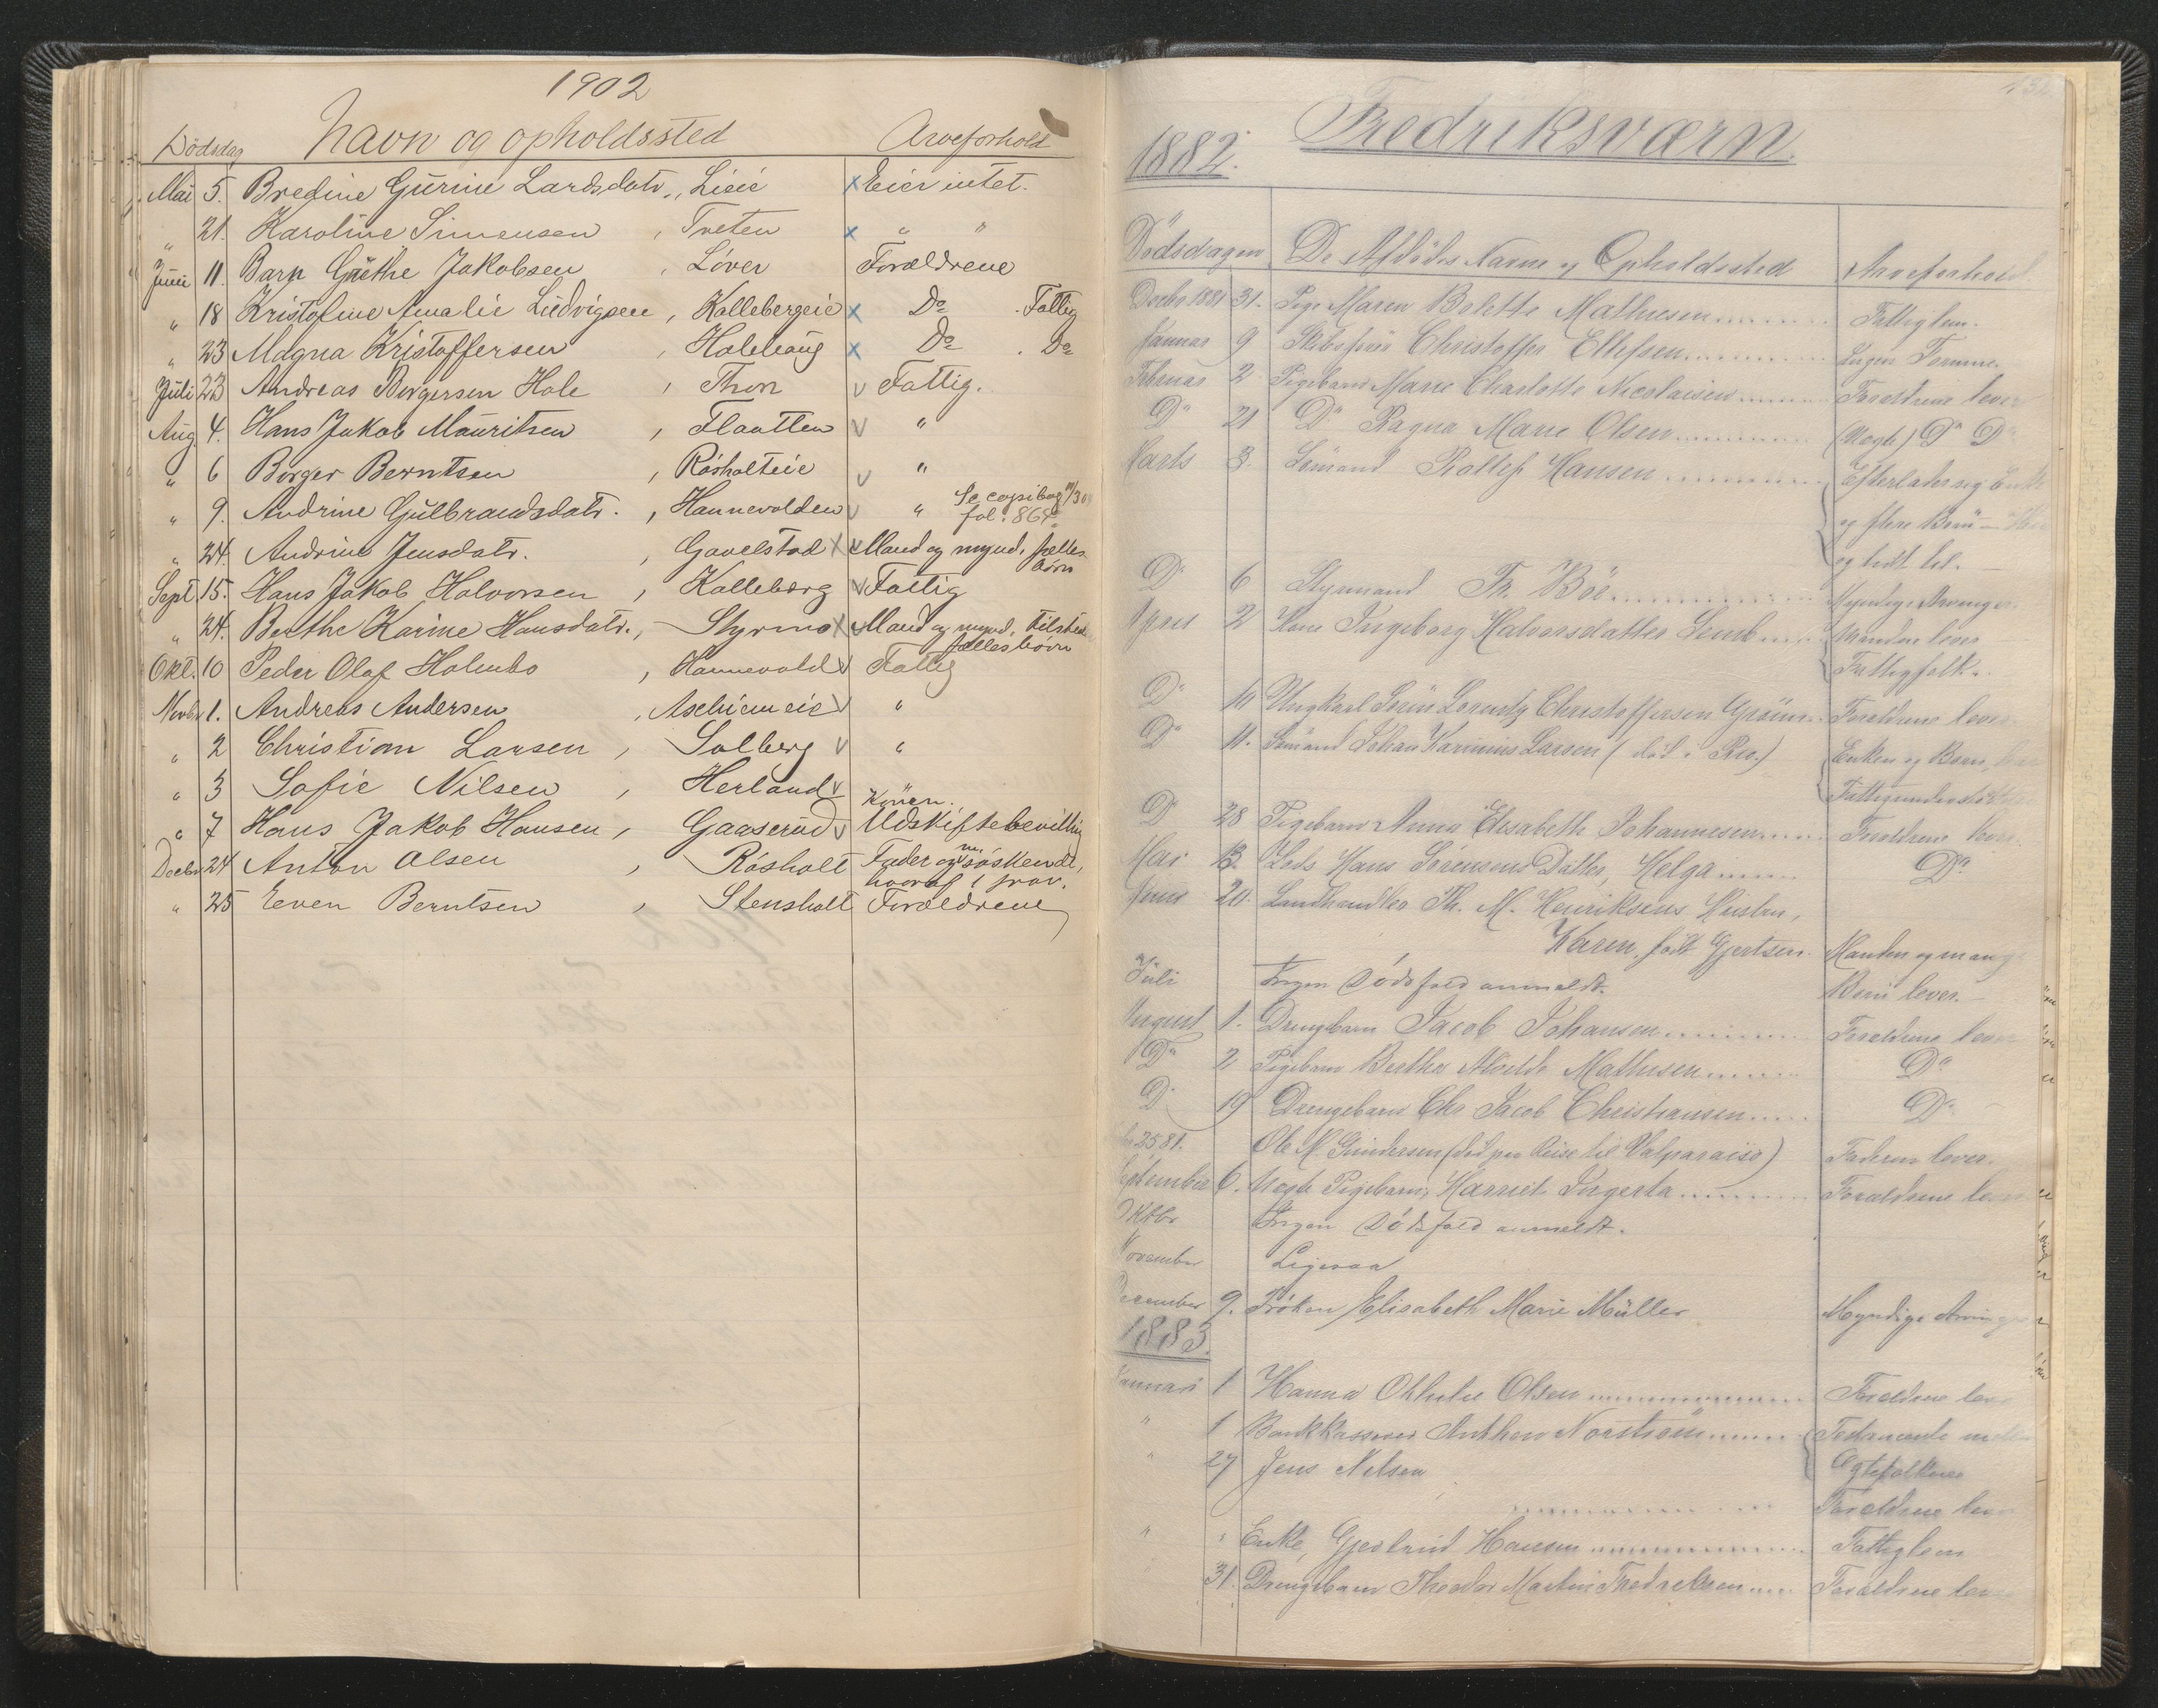 1902
Dödsdag Navn og opholdssted Arveforhold
Mai 5. Bredine Gurine Larsdatr., Lieie x Eier intet.
" 21. Karoline Simensen, Tveten x " "
Juni 11. Barn Gusthe Jakobsen, Löver Forældrene
" 18 Kristofine Amalie Ludvigsen, Kallebergeie x Do. Fattig
" 23 Magna Kristoffersen, Holehaug x Do. Do
Juli 23 Andreas Borgersen Hole, Thon v Fattig.
Aug. 4. Hans Jakob Mauritsen, Flaatten v "
" 6 Borger Berntsen, Rösholteie v "
" 9. Andrine Gulbrandsdatr., Hannevolden v " Se copibog
fol. 864
" 24. Andrine Jensdatr., Gavelstad x v Mand og mynd. fælles
börn
Sept. 15. Hans Jakob Halvorsen, Kalleberg v Fattig
" 24. Berthe Karine Hansdatr., Styrmo x v Mand og mynd. tilstede
fællesbörn
Okt. 10 Peder Olaf Holmbo, Hannevold v Fattig
Novbr 1. Andreas Andersen, Aschiemeie v "
" 2 Christian Larsen, Solberg v "
" 3 Sofie Nilsen, Herland v
Konen.
" 7 Hans Jakob Hansen, Gaaserud v Udskiftebevilling
Decbr 24 Anton Olsen, Rösholt Fader og m. söskende,
hvoraf 1 frav.
" 25 Even Berntsen, Stensholt Forældrene
Fredriksværn.
1882.
Dödsdagen De Afdödes Navne og Opholdssted Arveforhold
Decbr 1881 31. Pige Maren Bolette Mathiesen Fattiglem.
Januar 9 Skibsförer Christoffer Ellefsen Ingen Formue.
Februar 2 Pigebarn Marie Charlotte Nicolaisen Forældrene lever
Do 21 Do Ragna Marie Olsen (Uægte) Do Do
Marts 3. Sömand Rollef Hansen Efterlader sig Enke
og flere Börn
og lidt
Do 6 Styrmand Th. Böe Myndige Arvinger
April 2 Kone Ingeborg Halvorsdatter Manden lever
Fattigfolk.
Do 10 Ungkarl Sörin Lorentz Christoffersen Forældrene lever
Do 11. Sömand Johan Karinius Larsen (död i Rio.) Enken og Börn
Fattigunderstöttelse
Do 28 Pigebarn Anna Elisabeth Johannesen Forældrene lever.
Mai 13. Lods Hans Sörensens Datter, Helga Do
Juni 20. Landhandler Th. M. Henriksens Hustru,
Karen, född Gjertsen Manden og mange
Börn lever.
Juli Ingen Dödsfald anmeldt.
August 1. Drengebarn Jacob Johansen Forældrene lever
Do 2 Pigebarn Berthe Mathisen Do
Do 19 Drengebarn Chr Jacob Christiansen Do
25 81. Ole M. Gundersen (död paa Reise til Valparaiso) Faderen lever.
September 6. Uægte Pigebarn, Harriet Ingerta Forældrene lever
Oktbr Ingen Dödsfald anmeldt.
November Ligesaa
December 9. Fröken Elisabeth Marie Müller Myndige Arvinger
1883.
Januari 1 Hanna Othilie Olsen Forældrene lever
" 1 Bankkasserer Anthon Norström Testamente mellem
Ægtefolkene
" 27 Jens Nilsen
Forældrene lever
" " Enke, Gjertrud Hansen Fattiglem
31. Drengebarn Theodor Martin Fredriksen Forældrene lever